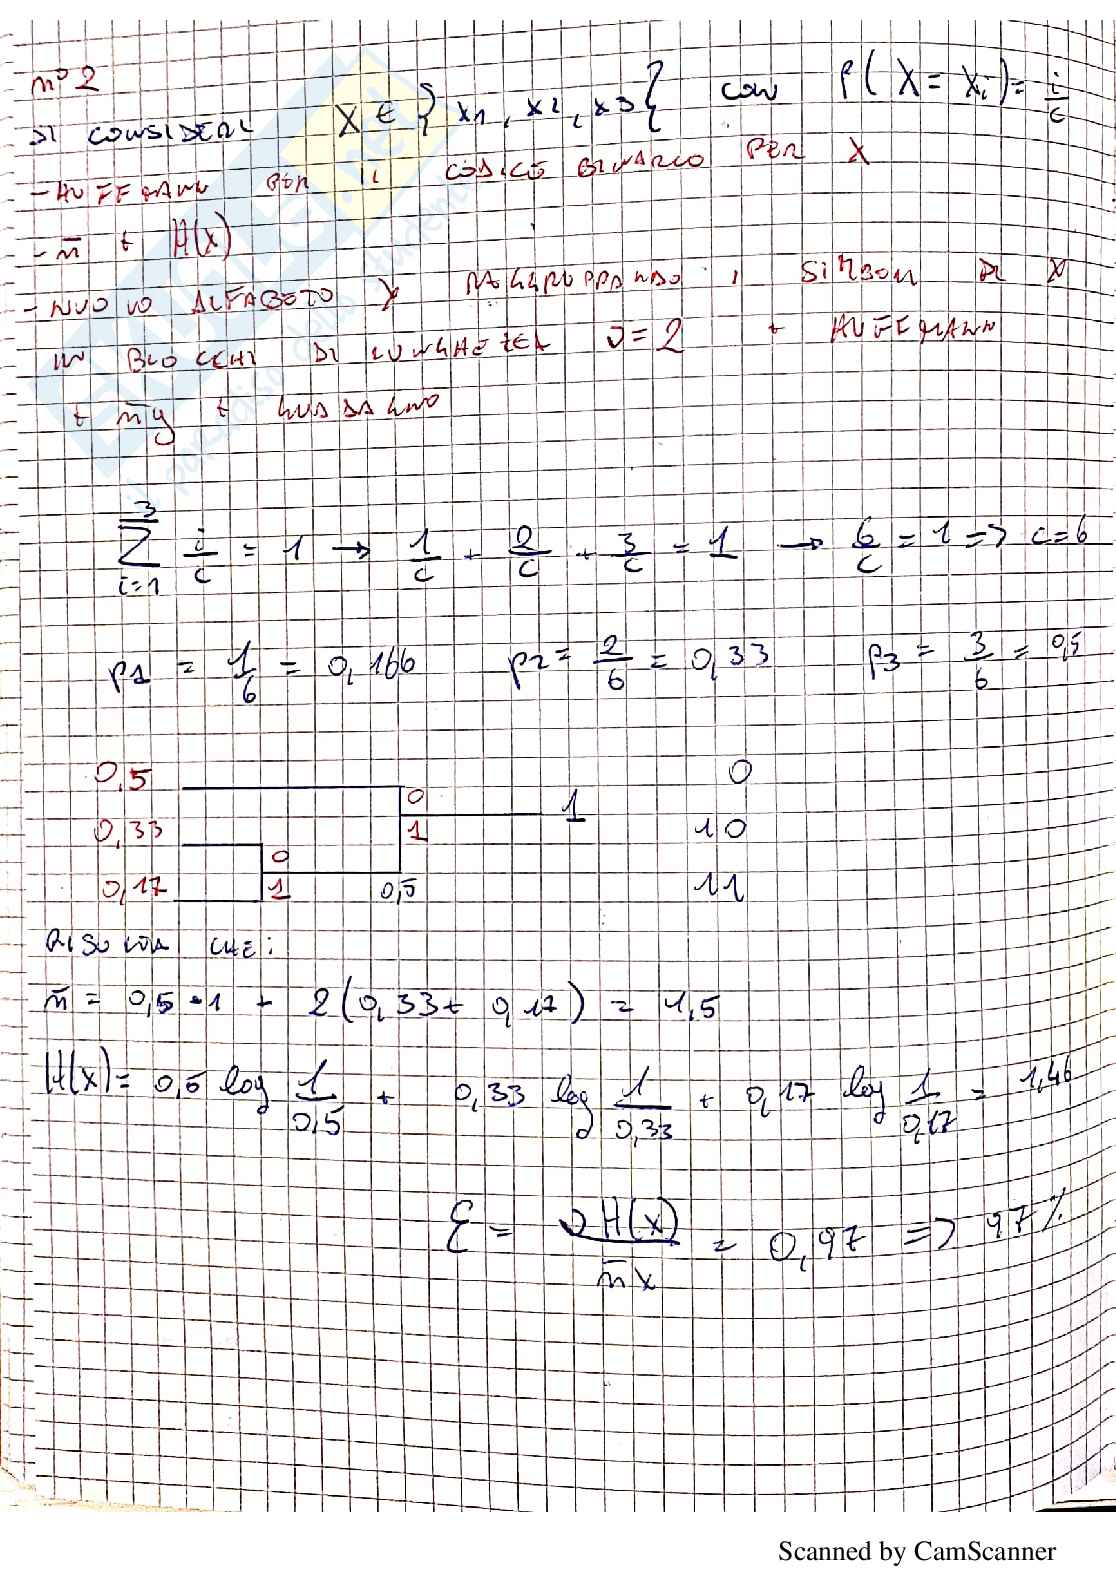 n° 2
SI CONSIDERI X ∈ }x1, x2, x3{ CON P(X = xi) = i/c
- HUFFMANN PER IL CODICE BINARIO PER X
- n̄ + H(x)
- NUOVO ALFABETO Y RAGGRUPPANDO I SIMBOLI DI X
IN BLOCCHI DI LUNGHEZZA ν = 2 + HUFFMANN
+ n̄y + GUADAGNO
∑ i=1 3 i/c = 1 → 1/c + 2/c + 3/c = 1 → 6/c = 1 => c = 6
p1 = 1/6 = 0,166 p2 = 2/6 = 0,33 p3 = 3/6 = 0,5
0,5 0 0
1
0,33 1 10
0
0,17 1 0,5 11
RISULTA CHE:
n̄ = 0,5 · 1 + 2(0,33 + 0,17) = 1,5
H(x) = 0,5 log 1/0,5 + 0,33 log 1/0,33 + 0,17 log 1/0,17 = 1,46
ξ = νH(x)/n̄x = 0,97 => 97%
Scanned by CamScanner